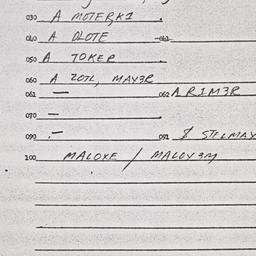 030 A MOTER,K1
040 A DLOTE 041
050 A TOKER
060 A ZOTL, MAY3R
061 — 062 A R1M3R
070 —
090 — 091 $ STELMAX
100 MALOKE / MALOV3M